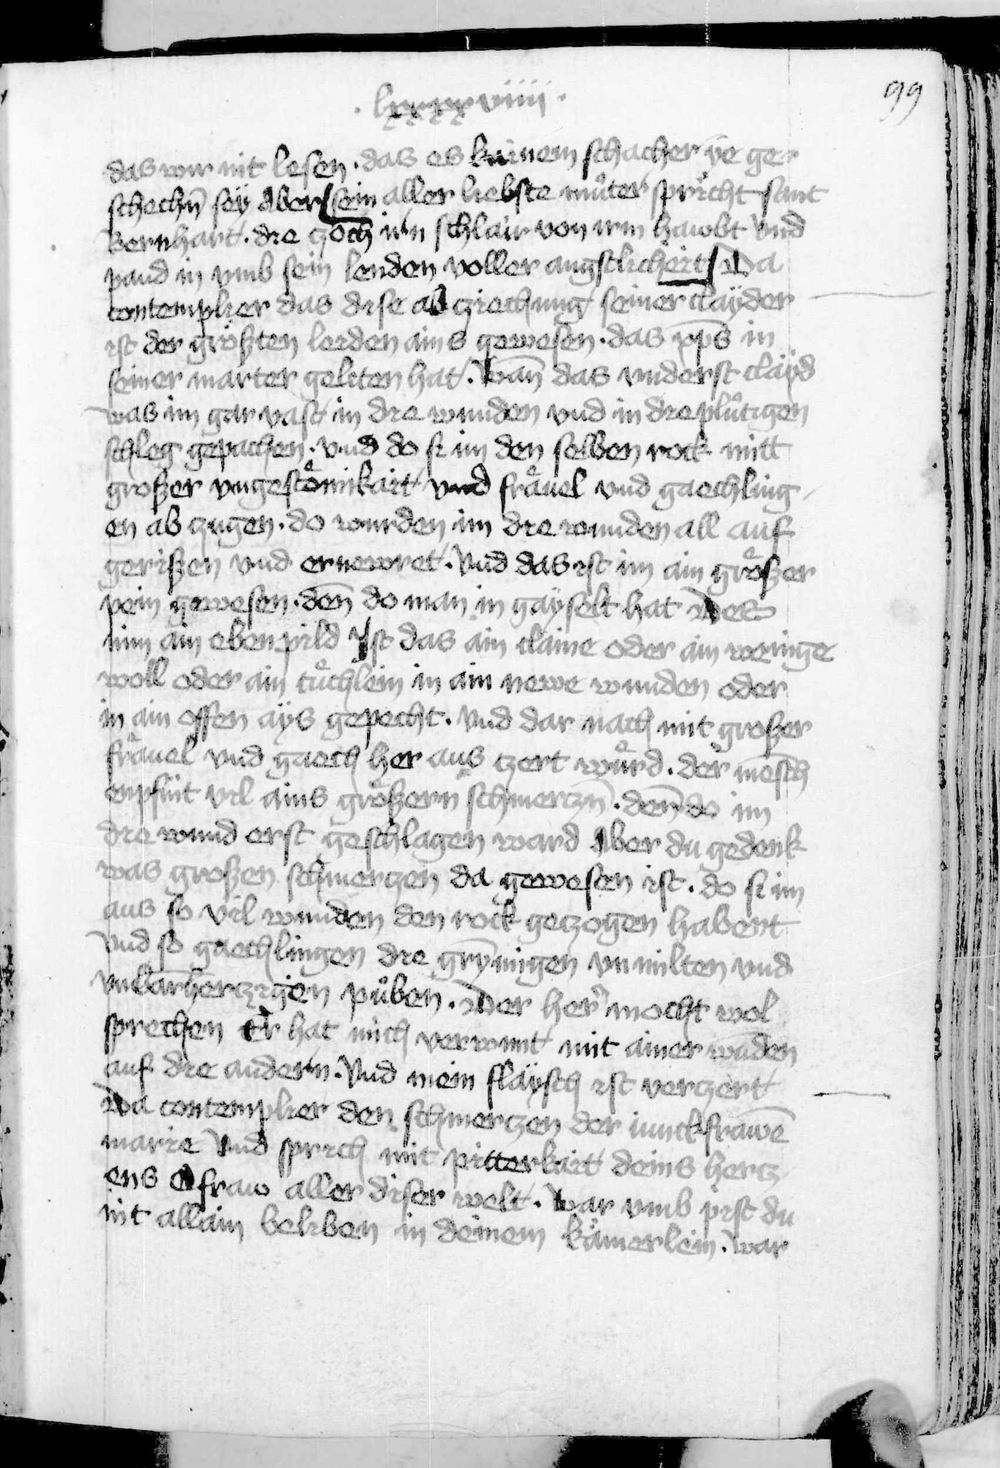 · lxxxxviiii ·
99
das wir nit lesen · das es kainem schacher ye ge
schechn̄ sey Aber sein aller liebste můter spricht sant
Bernhart · die zoch irn schlair von irm hawbt Vnd
pand in vmb sein lenden voller angstlicheit Da
contemplier das dise ab cziechung seiner clayder
ist der größten leiden ains gewesen · das xp̄s in
seiner marter geliten hat · Wan̄ das vnderst clayd
was im gar vast in die wunden vnd in die plůtigen
schleg gepachen · vnd do si im den selben rock mitt
großer vngestömikait vnd fräuel vnd gaechling
en ab zugen · do wurden im die wunden all auf
gerißen vnd ernewret · Vnd das ist im ain größer
pein gewesen · den̄ do man in gayselt hat Des
nim ain ebenpild Ist das ain claine oder ain weninge
woll oder ain tüchlein in ain newe wunden oder
in ain offen ays gepecht · Vnd dar nach mit großer
fräuel vnd gaech her aus czert würd · der mēsch
enpfint vil ains größern schmerczn̄ · den̄ do im
die wund erst geschlagen ward Aber du gedenk
was großen schmerczen da gewesen ist · do si im
aus so vil wunden den rock geczogen habent
Vnd so gaechlingen die grȳmigen vnmilten vnd
vnbarherczigen půben · Der her̄ mocht wol
sprechen Er hat mich verwunt mit ainer wūden
auf die andern · Vnd mein flaysch ist verczert
Da contemplier den schmerczen der iunckfrawē
marie Vnd sprich mit pitterkait deins hercz
ens O fraw aller diser welt · War vmb pist du
nit allain beliben in deinem kämerlein · war